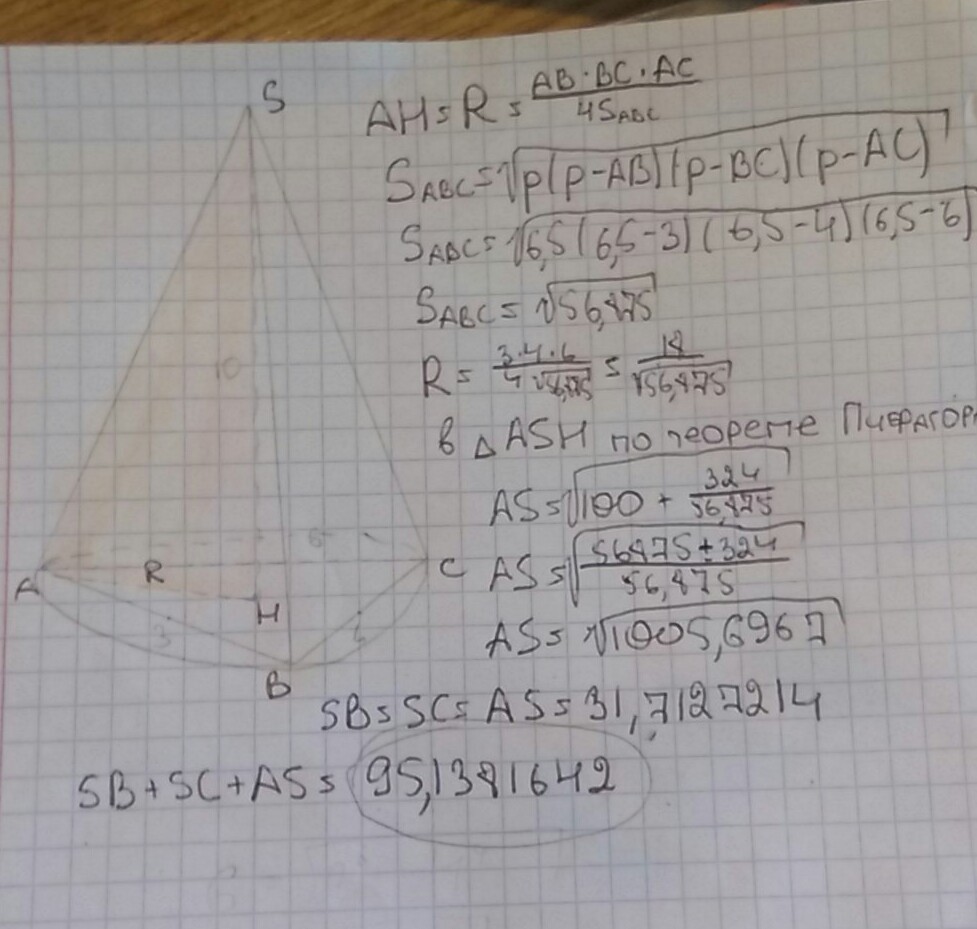 S
AH = R = AB·BC·AC / 4S_ABC
S_ABC = √p(p-AB)(p-BC)(p-AC)
S_ABC = √6,5(6,5-3)(6,5-4)(6,5-6)
S_ABC = √56,875
R = 3·4·6 / 4√56,875 = 18 / √56,875
10
в △ASH по теореме Пифагора
AS = √100 + 324 / 56,875
6
A R H C
AS = √56875+324 / 56,875
3
B
AS = √1005,6967
SB = SC = AS = 31,7127214
SB+SC+AS = 95,1381642